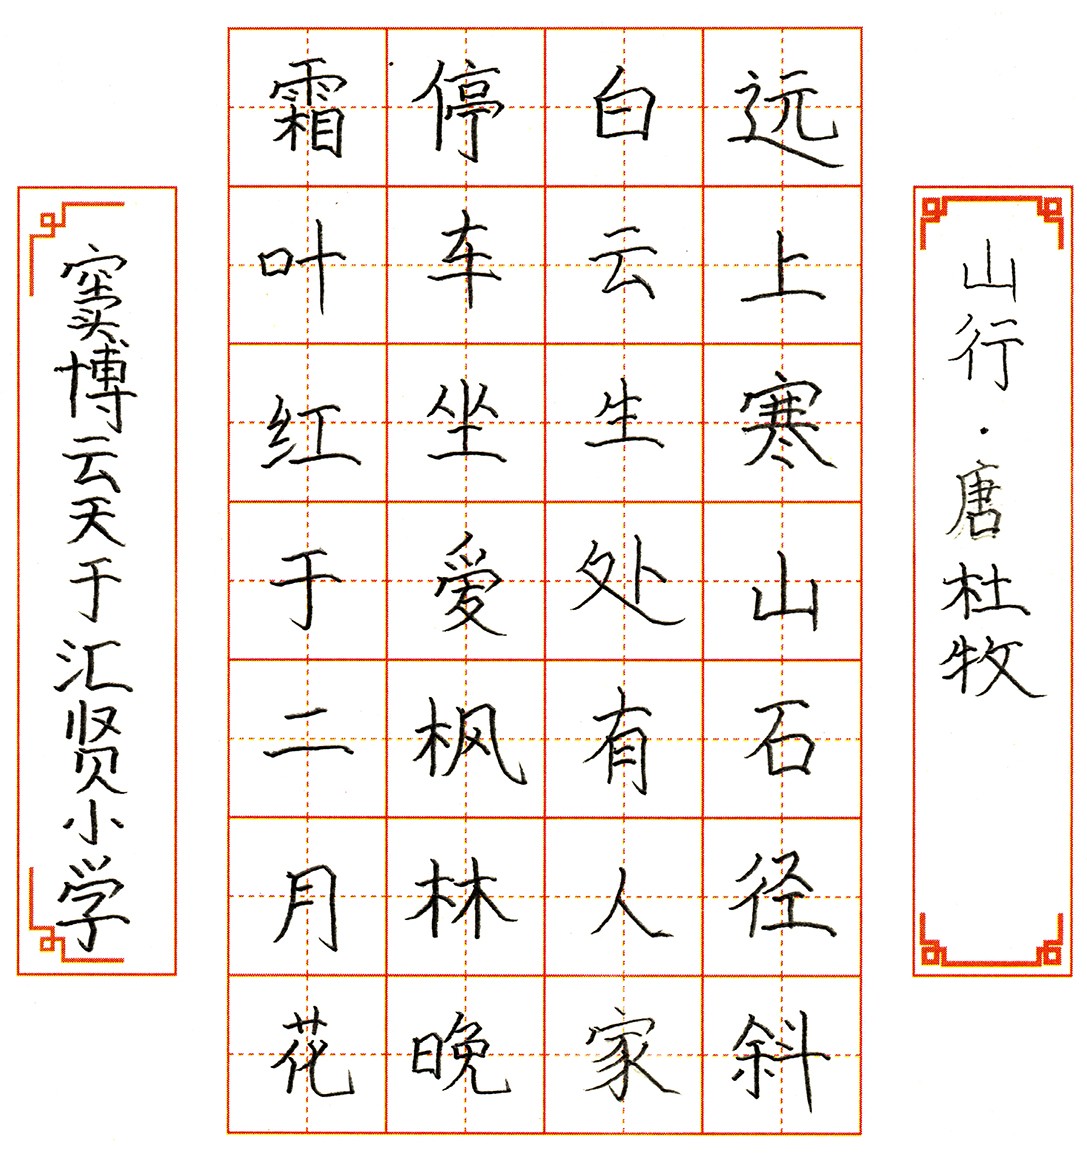 山行·唐杜牧
远上寒山石径斜
白云生处有人家
停车坐爱枫林晚
霜叶红于二月花
窦博云天于汇贤小学